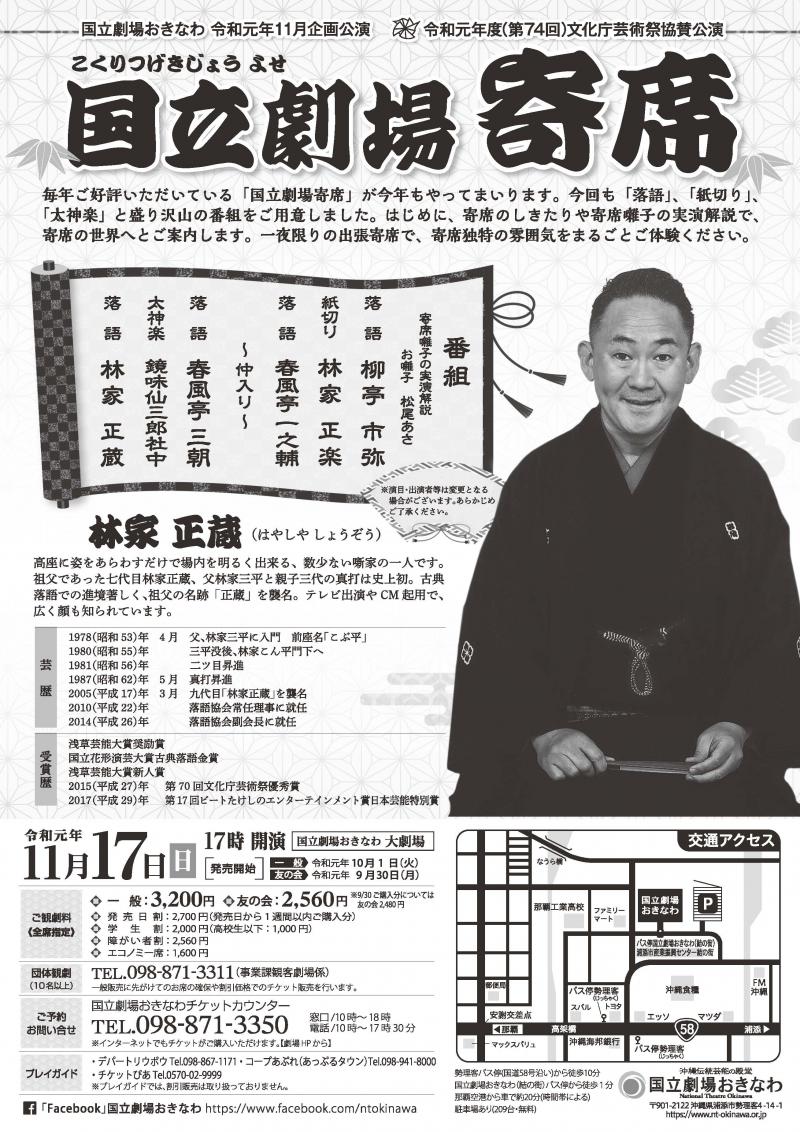 国立劇場おきなわ 令和元年11月企画公演 令和元年度(第74回)文化庁芸術祭協賛公演
こくりつげきじょう よせ
国立劇場 寄席
毎年ご好評いただいている「国立劇場寄席」が今年もやってまいります。今回も「落語」、「紙切り」、
「太神楽」と盛り沢山の番組をご用意しました。はじめに、寄席のしきたりや寄席囃子の実演解説で、
寄席の世界へとご案内します。一夜限りの出張寄席で、寄席独特の雰囲気をまるごとご体験ください。
番組
寄席囃子の実演解説
お囃子 松尾あさ
落語 柳亭 市弥
紙切り 林家 正楽
落語 春風亭一之輔
～仲入り～
落語 春風亭三朝
太神楽 鏡味仙三郎社中
落語 林家 正蔵
※演目・出演者等は変更となる
場合がございます。あらかじめ
ご了承ください。
林家 正蔵(はやしや しょうぞう)
高座に姿をあらわすだけで場内を明るく出来る、数少ない噺家の一人です。
祖父であった七代目林家正蔵、父林家三平と親子三代の真打は史上初。古典
落語での進境著しく、祖父の名跡「正蔵」を襲名。テレビ出演やCM起用で、
広く顔も知られています。
芸歴
1978(昭和53)年 4月 父、林家三平に入門 前座名「こぶ平」
1980(昭和55)年 三平没後、林家こん平門下へ
1981(昭和56)年 二ツ目昇進
1987(昭和62)年 5月 真打昇進
2005(平成17)年 3月 九代目「林家正蔵」を襲名
2010(平成22)年 落語協会常任理事に就任
2014(平成26)年 落語協会副会長に就任
受賞歴
浅草芸能大賞奨励賞
国立花形演芸大賞古典落語金賞
浅草芸能大賞新人賞
2015(平成27)年 第70回文化庁芸術祭優秀賞
2017(平成29)年 第17回ビートたけしのエンターテインメント賞日本芸能特別賞
令和元年
11月17日日 17時 開演 国立劇場おきなわ 大劇場
発売開始 一般 令和元年10月1日(火)
友の会 令和元年 9月30日(月)
ご観劇料
《全席指定》
一般:3,200円 友の会:2,560円 ※9/30ご購入分については
友の会2,480円
発売日割:2,700円(発売日から1週間以内ご購入分)
学生割:2,000円(高校生以下:1,000円)
障がい者割:2,560円
エコノミー席:1,600円
団体観劇
(10名以上)
TEL.098-871-3311(事業課観客劇場係)
一般販売に先がけてのお席の確保や割引価格でのチケット販売を行います。
ご予約
お問い合せ
国立劇場おきなわチケットカウンター
TEL.098-871-3350 窓口/10時～18時
電話/10時～17時30分
※インターネットでもチケットがご購入いただけます。【劇場HPから】
プレイガイド
・デパートリウボウ Tel.098-867-1171・コープあぷれ(あっぷるタウン)Tel.098-941-8000
・チケットぴあ Tel.0570-02-9999
※プレイガイドでは、割引販売は取り扱っておりません。
「Facebook」国立劇場おきなわ https://www.facebook.com/ntokinawa
交通アクセス
なうら橋
那覇工業高校
ファミリー
マート
国立劇場
おきなわ
P
バス停国立劇場おきなわ(結の街)
浦添市産業振興センター結の街
郵便局
バス停勢理客
(じっちゃく)
スバル
トヨタ
沖縄食糧
FM
沖縄
安謝交差点
エッソ
マツダ
那覇
高架橋
58
浦添
マックスバリュ
沖縄海邦銀行
バス停勢理客
(じっちゃく)
勢理客バス停(国道58号沿い)から徒歩10分
国立劇場おきなわ(結の街)バス停から徒歩1分
那覇空港から車で約20分(時間帯による)
駐車場あり(209台・無料)
沖縄伝統芸能の殿堂
国立劇場おきなわ
National Theatre Okinawa
〒901-2122 沖縄県浦添市勢理客4-14-1
https://www.nt-okinawa.or.jp